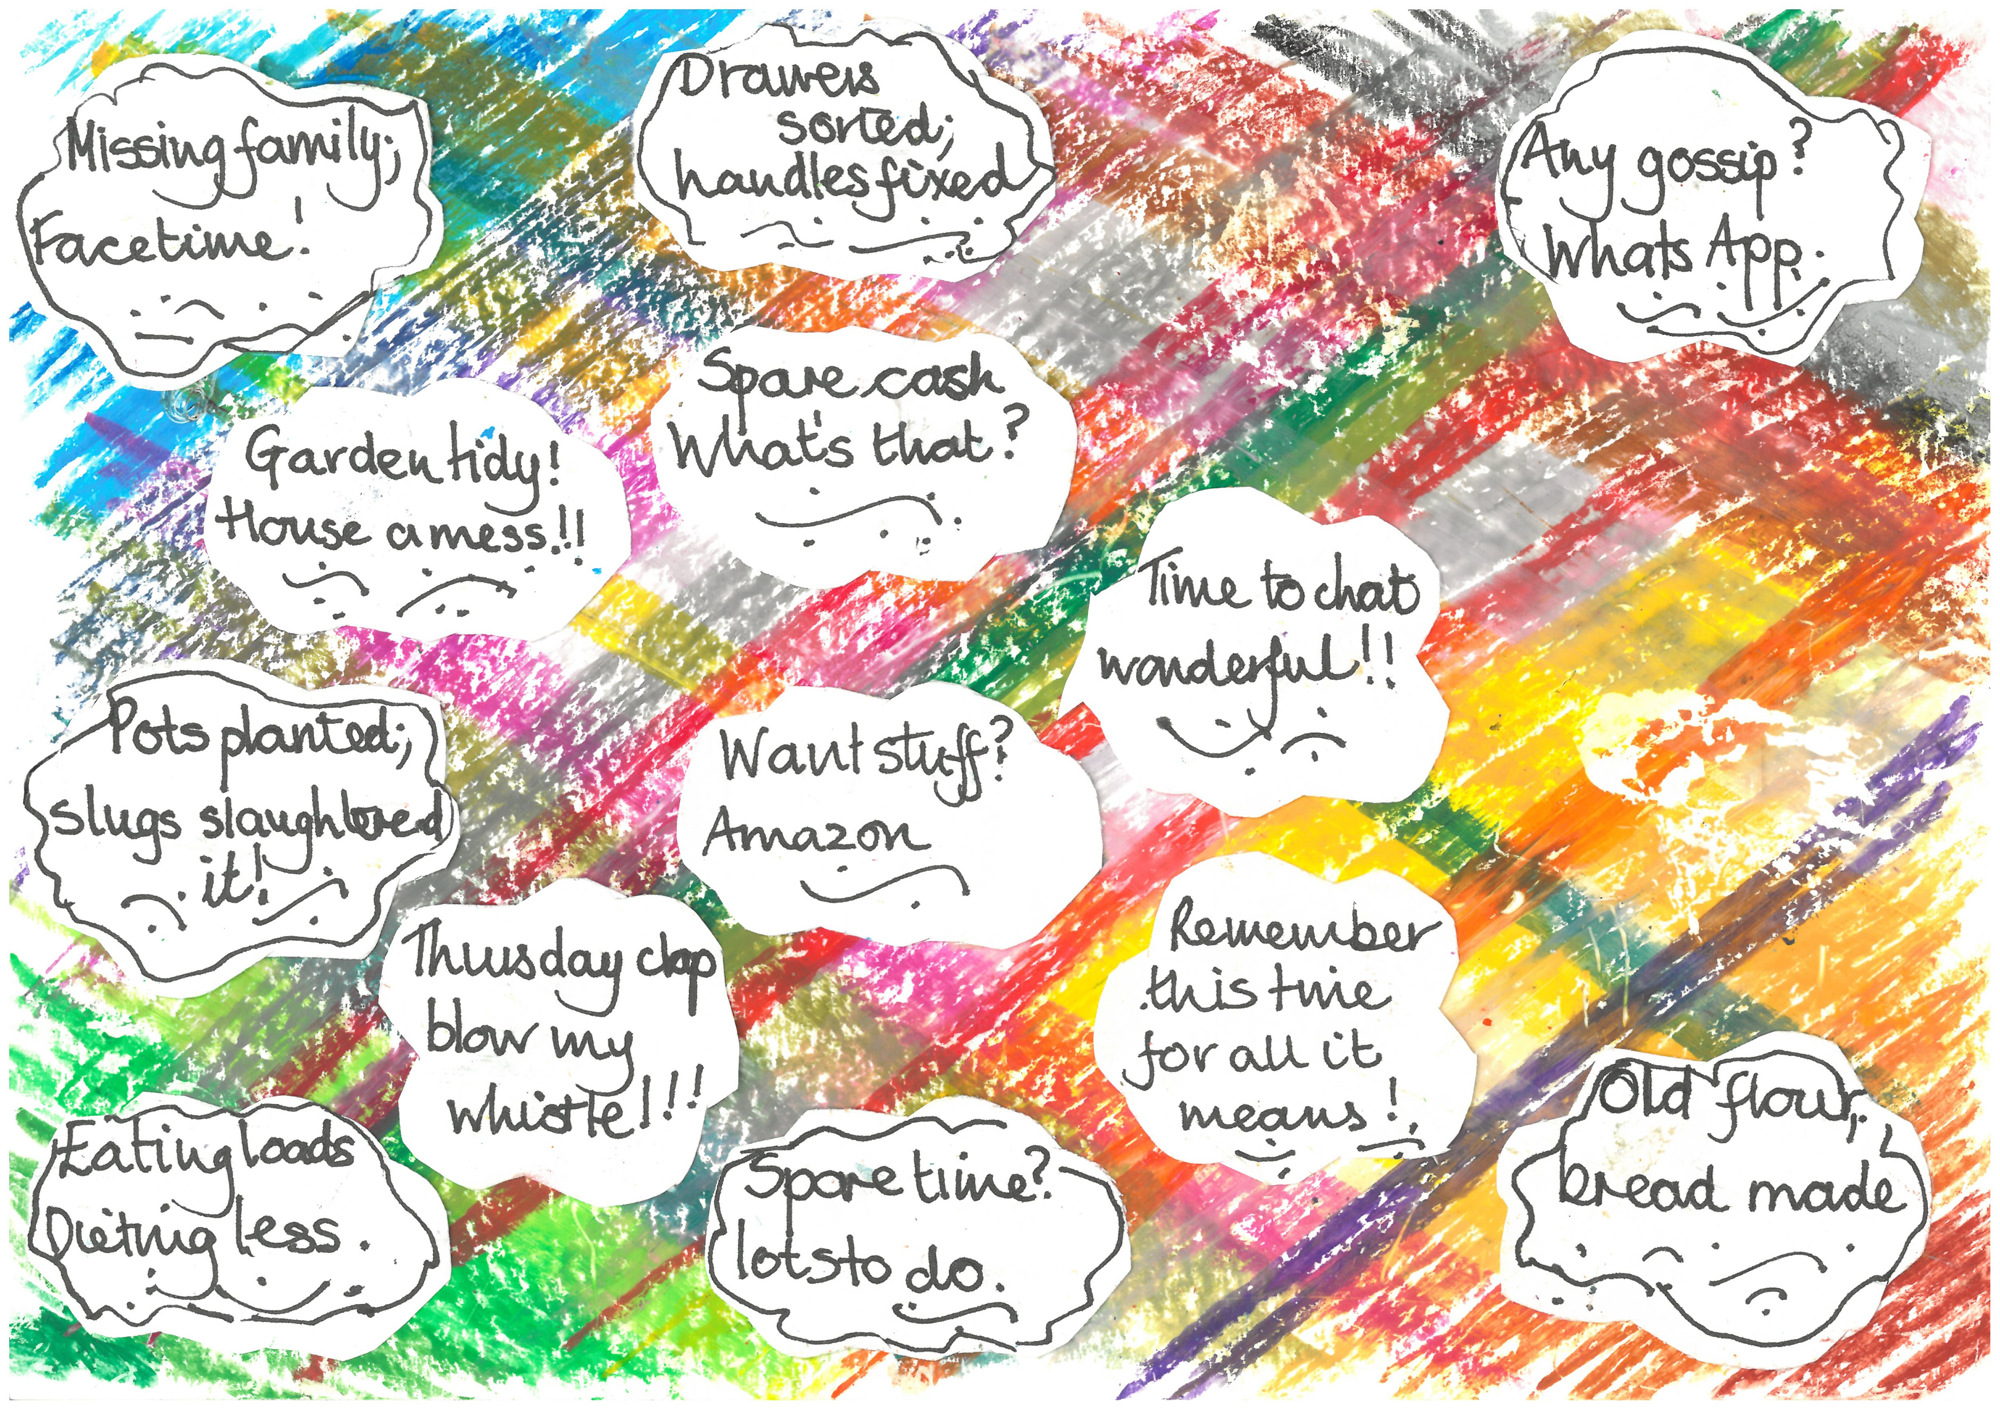 Missing family;
Facetime!
Drawers
sorted;
handles fixed
Any gossip?
Whats App.
Garden tidy!
House a mess!!!
Spare cash
What's that?
Time to chat
wonderful!!
Pots planted;
slugs slaughtered
it!
Want stuff?
Amazon
Thursday clap
blow my
whistle!!!
Remember
this time
for all it
means!
Eating loads
Dieting less.
Spare time?
lots to do.
Old flour,
bread made